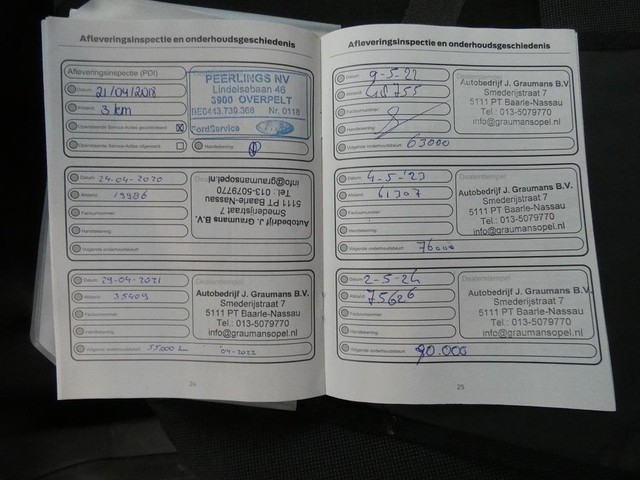 Afleveringsinspectie en onderhoudsgeschiedenis
Afleveringsinspectie (PDI)
Datum: 21/04/2018
Afstand: 3 km
Openstaande Service-Acties gecontroleerd
Openstaande Service-Acties uitgevoerd
Handtekening:
PEERLINGS NV
Lindelsebaan 46
3900 OVERPELT
BE0413.730.368 Nr. 0118
FordService
Datum: 24-04-2020
Afstand: 19986
Factuurnummer:
Handtekening:
Volgende onderhoudsbeurt:
Autobedrijf J. Graumans B.V.
Smederijstraat 7
5111 PT Baarle-Nassau
Tel.: 013-5079770
info@graumansopel.nl
Datum: 29-04-2021
Afstand: 35409
Factuurnummer:
Handtekening:
Volgende onderhoudsbeurt: 55000 04-2022
Dealerstempel
Autobedrijf J. Graumans B.V.
Smederijstraat 7
5111 PT Baarle-Nassau
Tel.: 013-5079770
info@graumansopel.nl
24
Afleveringsinspectie en onderhoudsgeschiedenis
Datum: 9-5-22
Afstand: 48755
Factuurnummer:
Handtekening:
Volgende onderhoudsbeurt: 63000
Autobedrijf J. Graumans B.V.
Smederijstraat 7
5111 PT Baarle-Nassau
Tel.: 013-5079770
info@graumansopel.nl
Datum: 4-5-'23
Afstand: 61307
Factuurnummer:
Handtekening:
Volgende onderhoudsbeurt: 76000
Dealerstempel
Autobedrijf J. Graumans B.V.
Smederijstraat 7
5111 PT Baarle-Nassau
Tel.: 013-5079770
info@graumansopel.nl
Datum: 2-5-24
Afstand: 75626
Factuurnummer:
Handtekening:
Volgende onderhoudsbeurt: 90.000
Dealerstempel
Autobedrijf J. Graumans B.V.
Smederijstraat 7
5111 PT Baarle-Nassau
Tel.: 013-5079770
info@graumansopel.nl
25